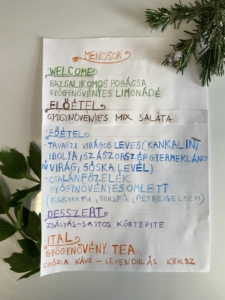 MENÜSOR
WELCOME
BAZSALIKOMOS POGÁCSA
GYÓGYNÖVÉNYES LIMONÁDÉ
ELŐÉTEL
GYÓGYNÖVÉNYES MIX SALÁTA
FŐÉTEL
TAVASZI VIRÁGOS LEVES (KANKALIN,
IBOLYA, SZÁSZORSZÉP, GYERMEKLÁNC
VIRÁG, SÓSKA LEVÉL)
-CSALÁNFŐZELÉK
GYÓGYNÖVÉNYES OMLETT
(KAKUKKFŰ, BORSFŰ, PETREZSELYEM)
DESSZERT
ZSÁLYÁS-SAJTOS KÖRTEPITE
ITAL
GYÓGYNÖVÉNY TEA
KÁVÉ - LEVENDULÁS KEKSZ